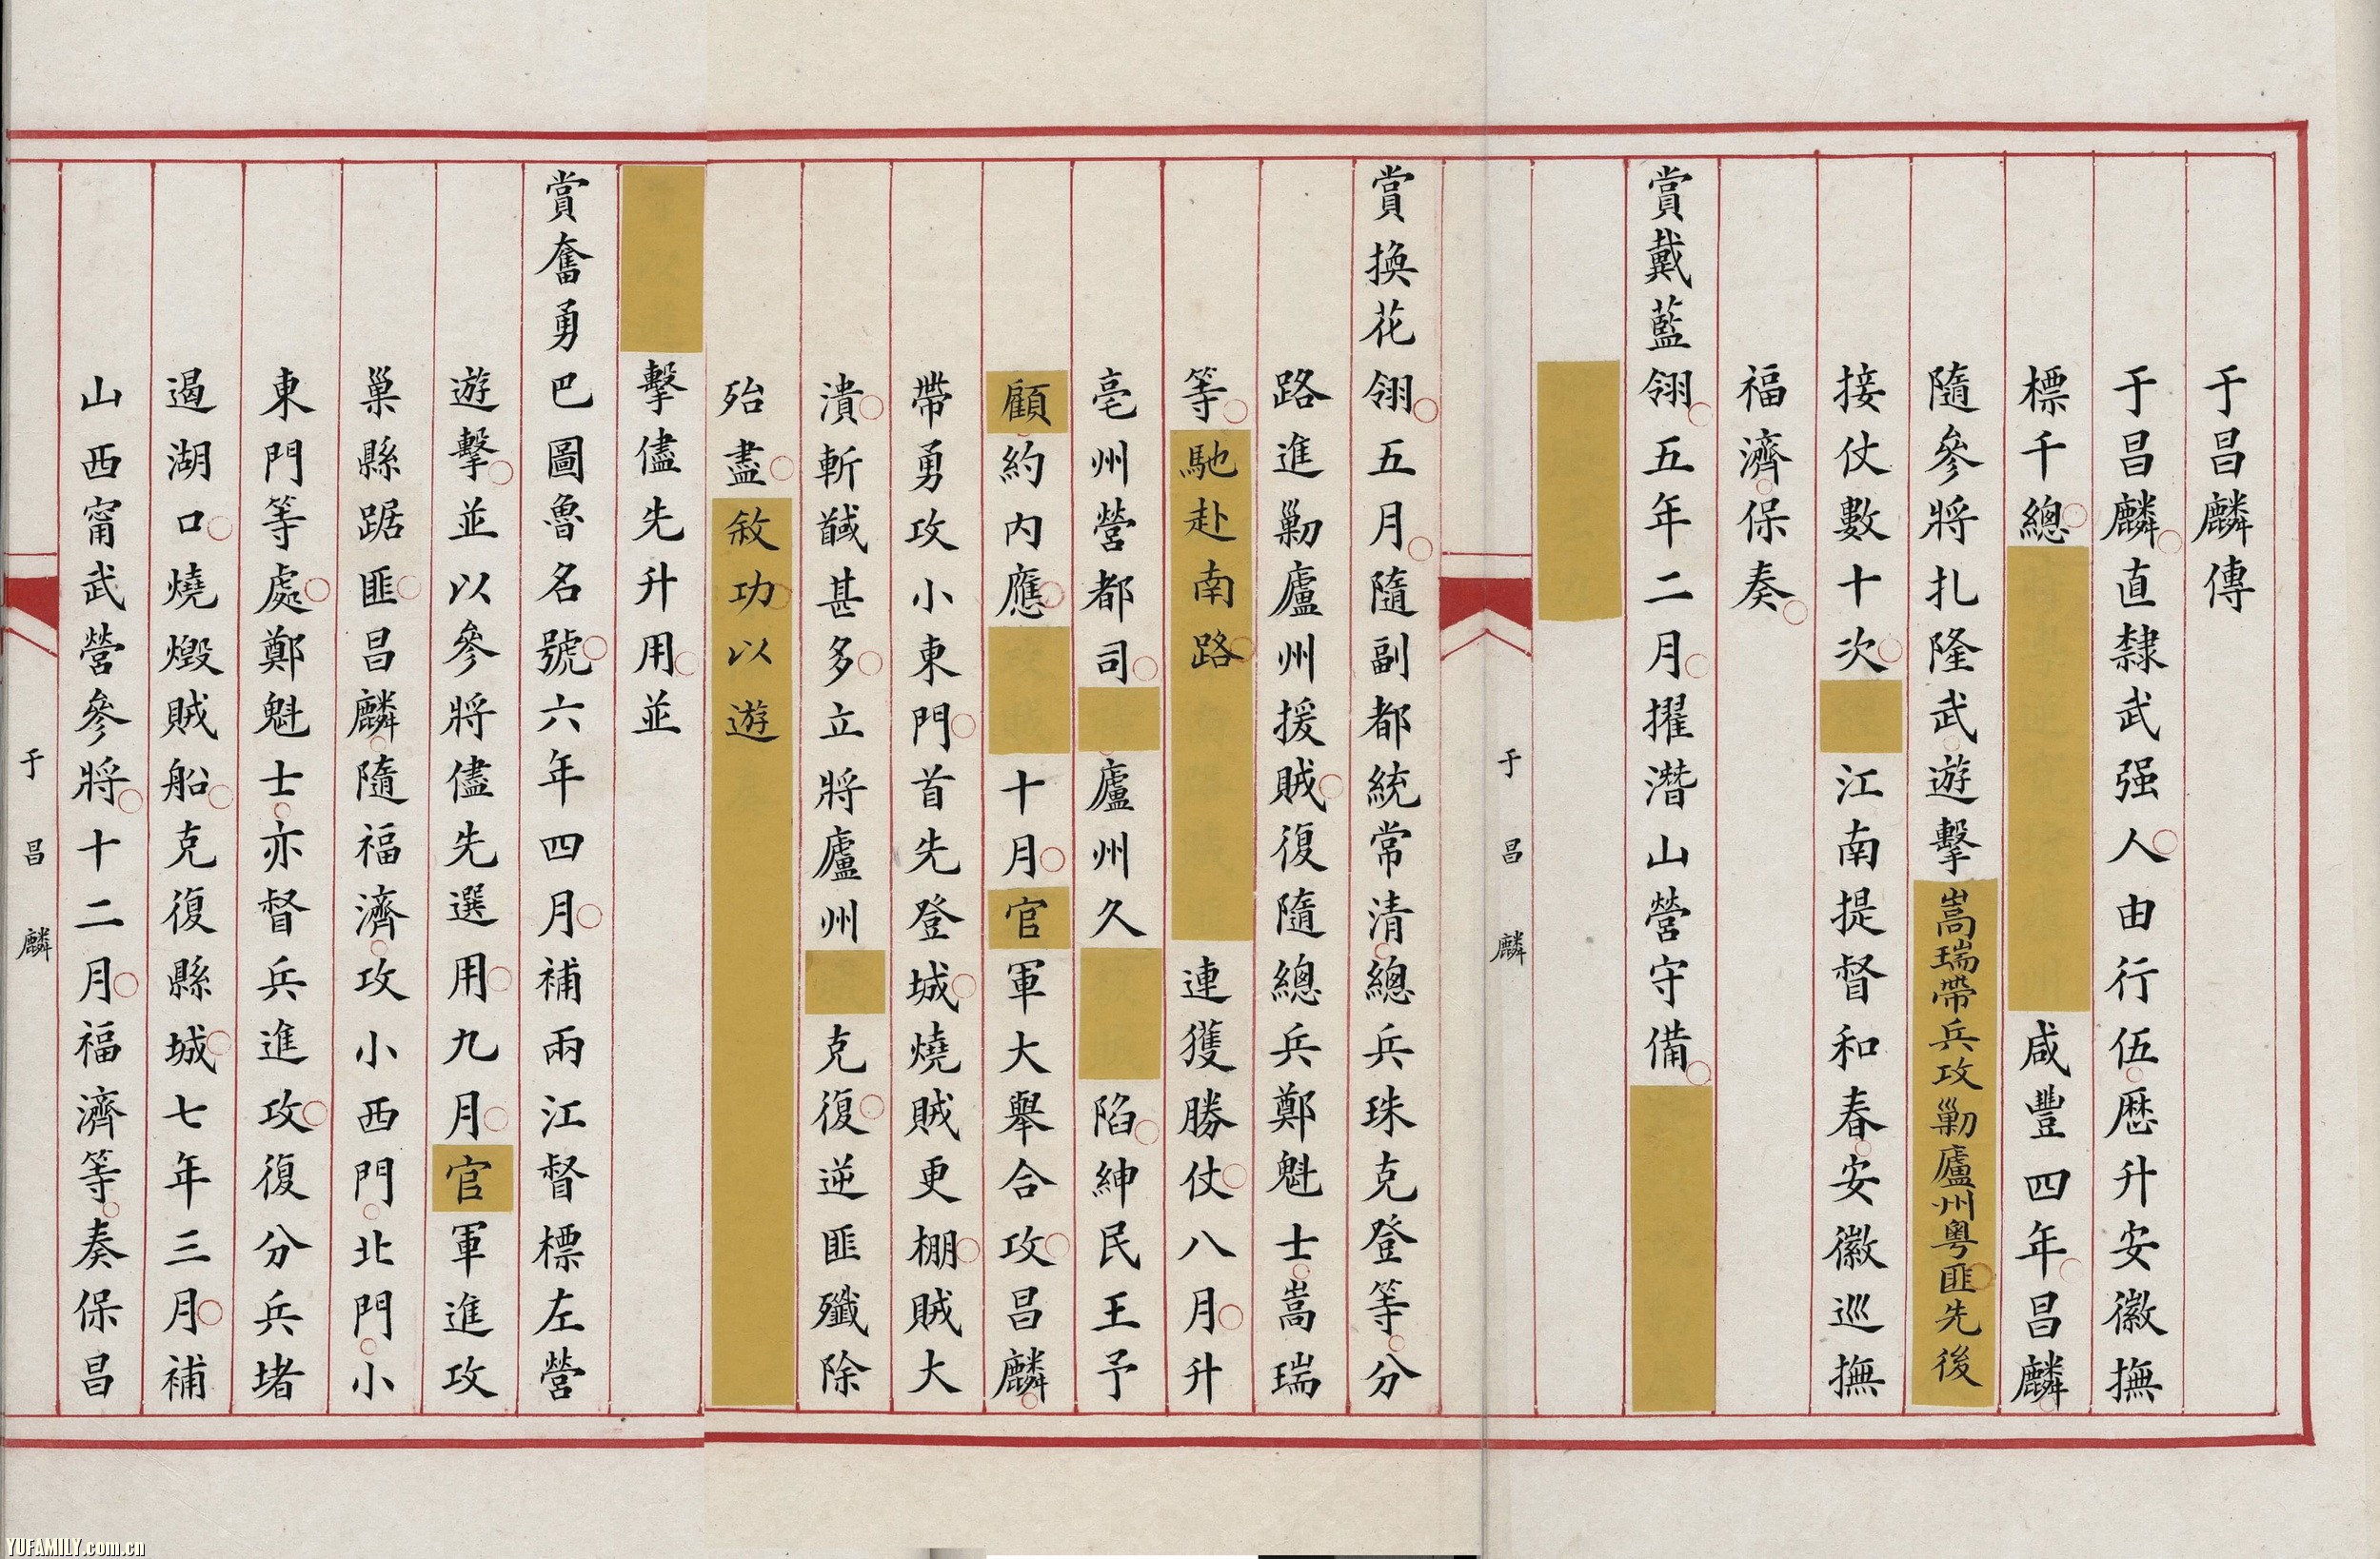 于昌麟傳
于昌麟直隸武强人由行伍歴升安徽撫
標千總咸豐四年昌麟
隨參將扎隆武遊擊嵩瑞帶兵攻勦廬州粤匪先後
接仗數十次江南提督和春安徽巡撫
福濟保奏
賞戴藍翎五年二月擢潛山營守備
于昌麟
賞換花翎五月隨副都統常清總兵珠克登等分
路進勦廬州援賊復隨總兵鄭魁士嵩瑞
等馳赴南路連獲勝仗八月升
亳州營都司廬州久陷紳民王予
顧約内應十月官軍大舉合攻昌麟
帶勇攻小東門首先登城燒賊更棚賊大
潰斬馘甚多立將廬州克復逆匪殲除
殆盡敘功以遊
擊儘先升用並
賞奮勇巴圖魯名號六年四月補兩江督標左營
遊擊並以參將儘先選用九月官軍進攻
巢縣踞匪昌麟隨福濟攻小西門北門小
東門等處鄭魁士亦督兵進攻復分兵堵
遏湖口燒燬賊船克復縣城七年三月補
山西甯武營參將十二月福濟等奏保昌
于昌麟
YUFAMILY.com.cn